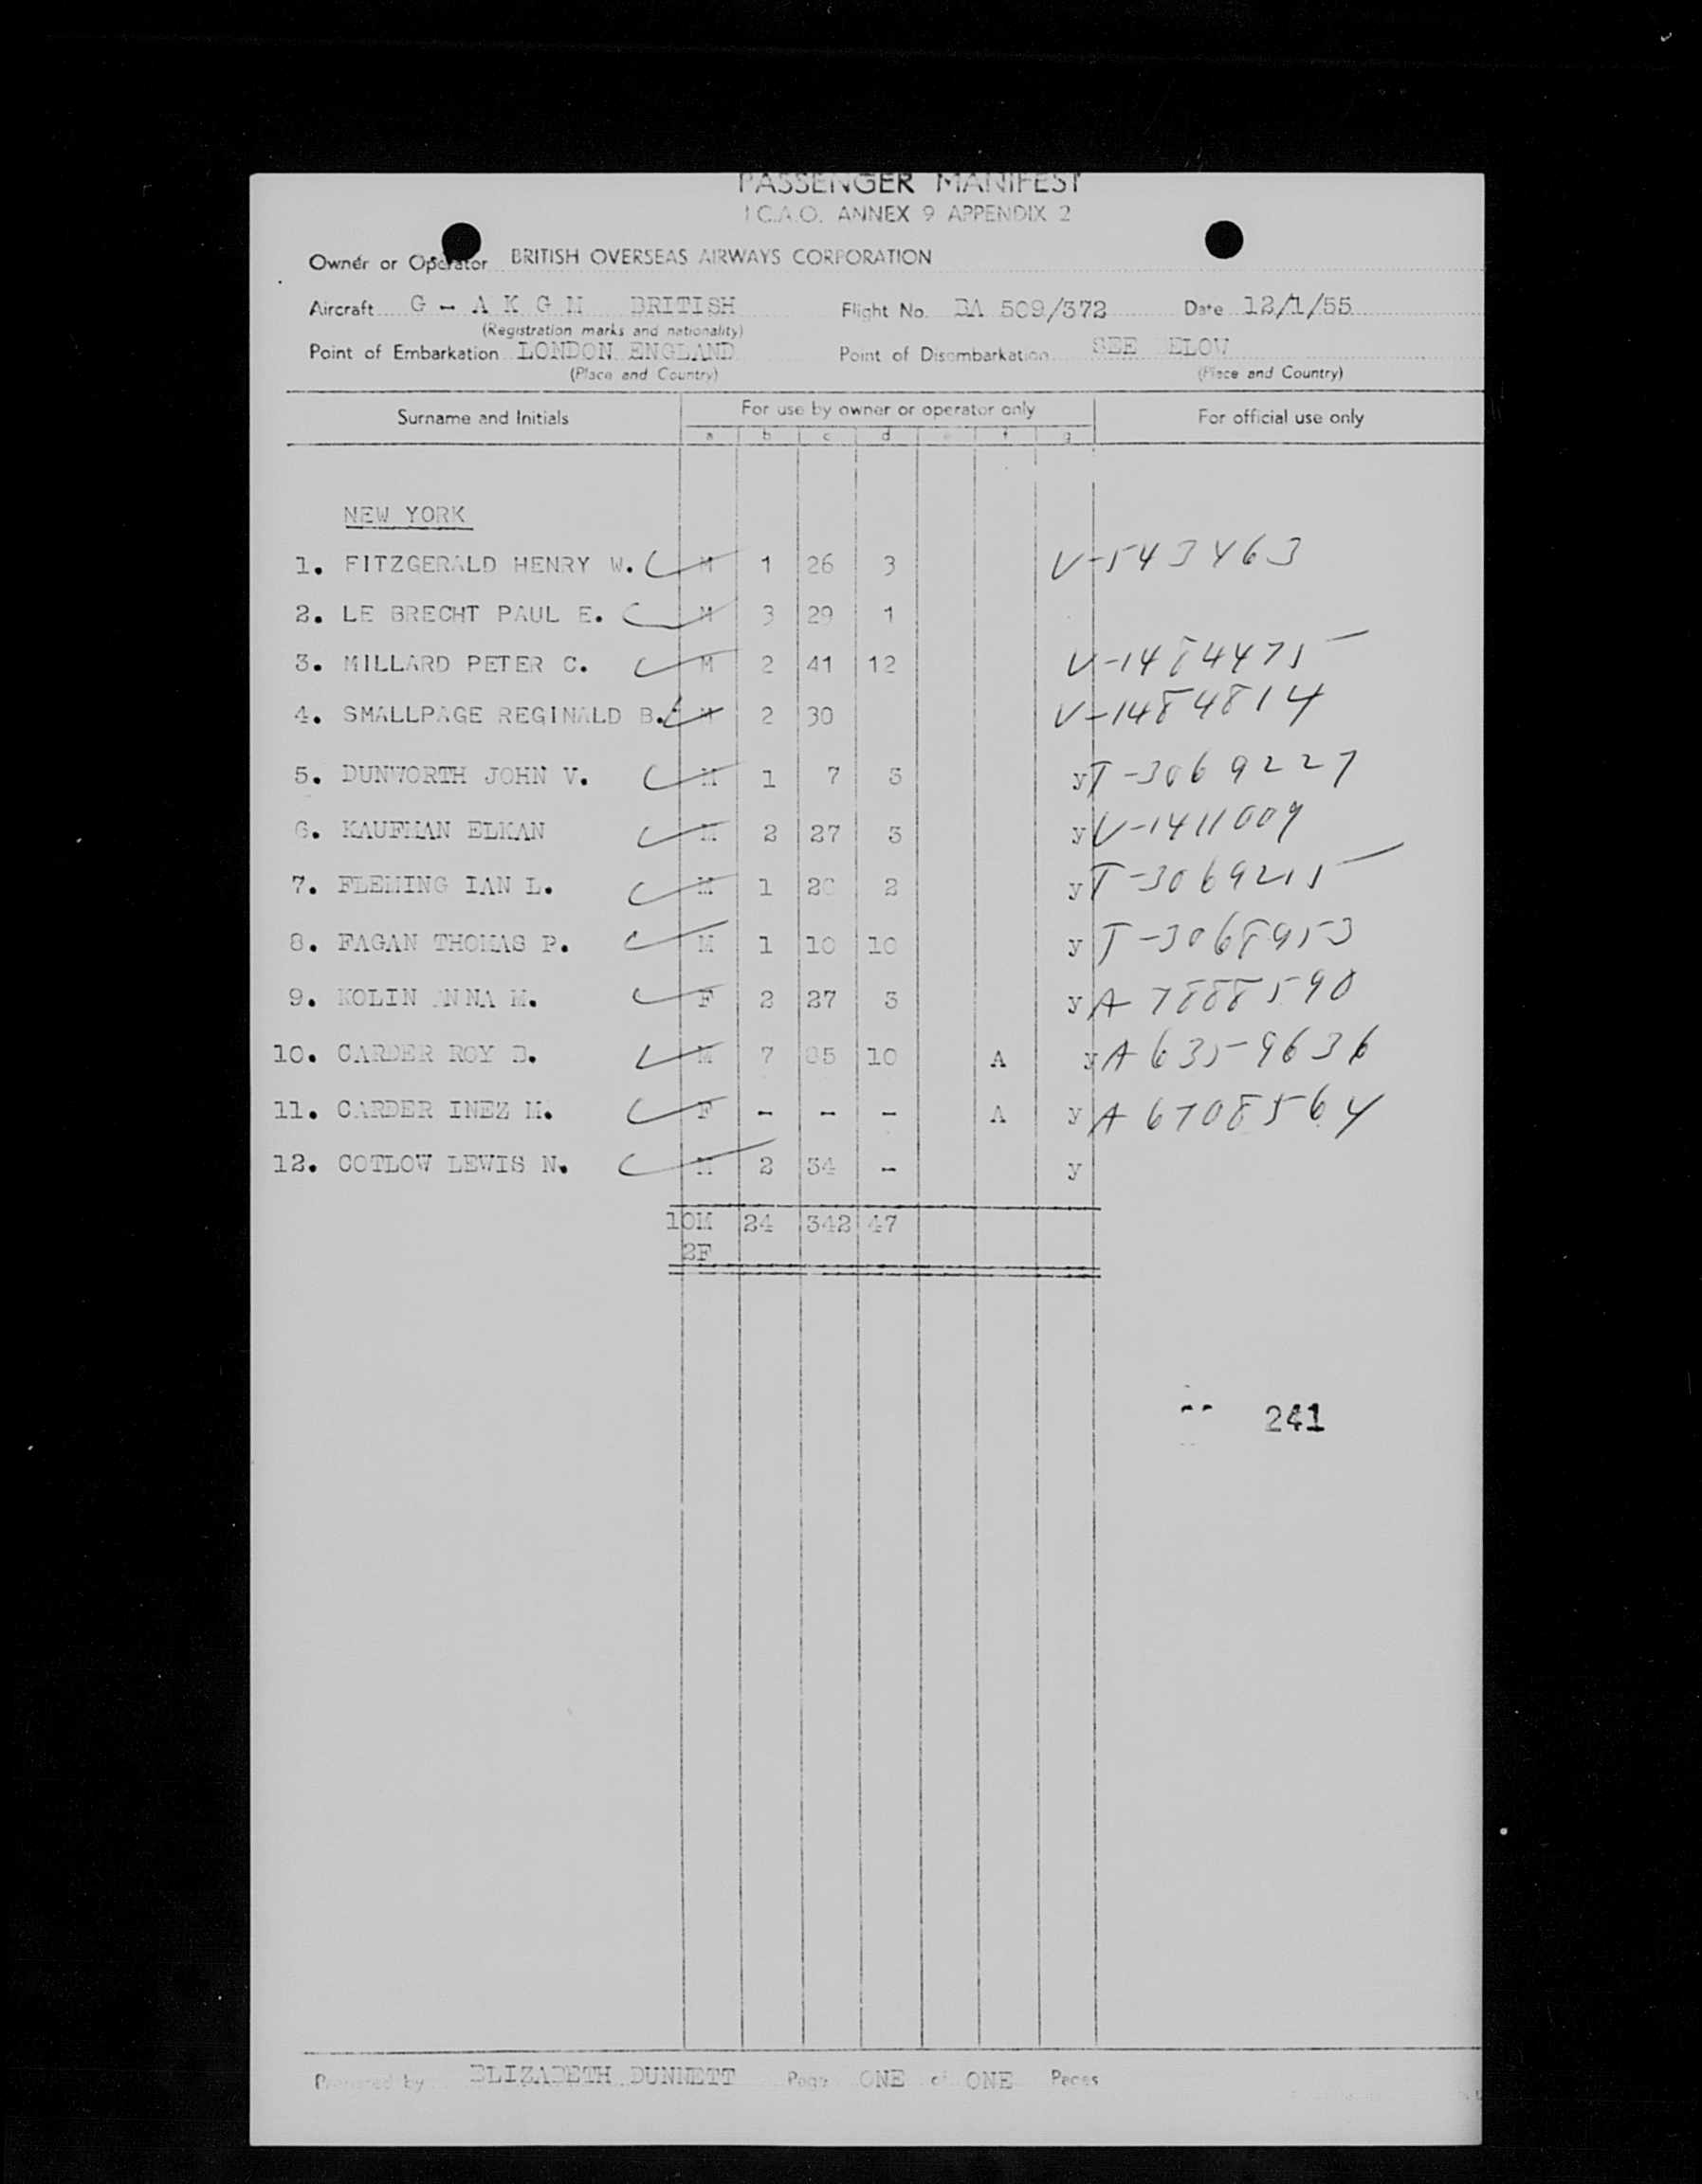 PASSENGER MANIFEST
I C.A.O. ANNEX 9 APPENDIX 2
Owner or Operator BRITISH OVERSEAS AIRWAYS CORPORATION
Aircraft G - A K G M BRITISH Flight No. BA 509/372 Date 12/1/55
(Registration marks and nationality)
Point of Embarkation LONDON ENGLAND Point of Disembarkation SEE ELOW
(Place and Country) (Place and Country)
Surname and Initials For use by owner or operator only For official use only
a b c d e f g
NEW YORK
1. FITZGERALD HENRY W. M 1 26 3 V-543463
2. LE BRECHT PAUL E. M 3 29 1
3. MILLARD PETER C. M 2 41 12 V-1484475
4. SMALLPAGE REGINALD B. M 2 30 V-1484814
5. DUNWORTH JOHN V. M 1 7 3 y T-3069227
6. KAUFMAN ELKAN M 2 27 3 y V-1411009
7. FLEMING IAN L. M 1 2 y T-3069215
8. FAGAN THOMAS P. M 1 10 10 y T-3068953
9. KOLIN NNA M. F 2 27 3 y A 7888590
10. CARDER ROY B. M 7 85 10 A y A 6359636
11. CARDER INEZ M. F - - - A y A 6708564
12. COTLOW LEWIS N. M 2 34 - y
10M 24 342 47
2F
241
Prepared by ELIZABETH DUNNETT Page ONE of ONE Pages